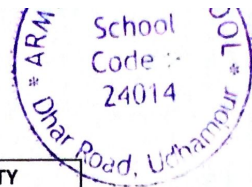 ARM
OOL
School
Code :-
24014
* Dhar Road, Udhampur *
TY